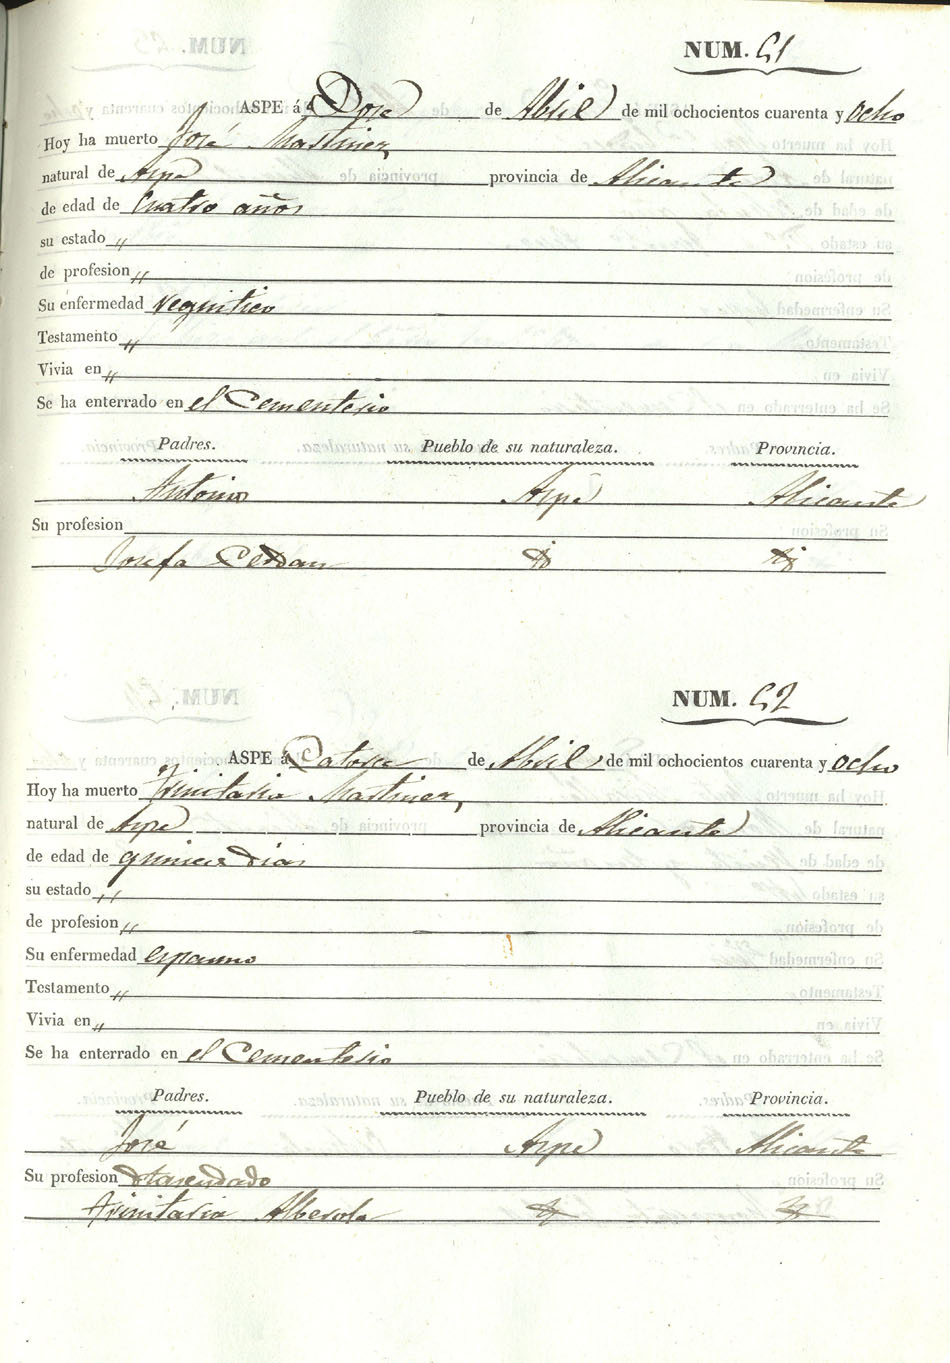 NUM. 51
ASPE á Doze de Abril de mil ochocientos cuarenta y ocho
Hoy ha muerto José Martinez,
natural de Aspe provincia de Alicante
de edad de Cuatro años
su estado „
de profesion „
Su enfermedad
Testamento „
Vivia en „
Se ha enterrado en el Cementerio
Padres. Pueblo de su naturaleza. Provincia.
Antonio Aspe Alicante
Su profesion
Josefa Cerdan id id
NUM. 52
ASPE á Catorce de Abril de mil ochocientos cuarenta y ocho
Hoy ha muerto Trinitaria Martinez,
natural de Aspe provincia de Alicante
de edad de quince dias
su estado „
de profesion „
Su enfermedad espasmo
Testamento „
Vivia en „
Se ha enterrado en el Cementerio
Padres. Pueblo de su naturaleza. Provincia.
José Aspe Alicante
Su profesion Hasendado
Trinitaria Alberola id id